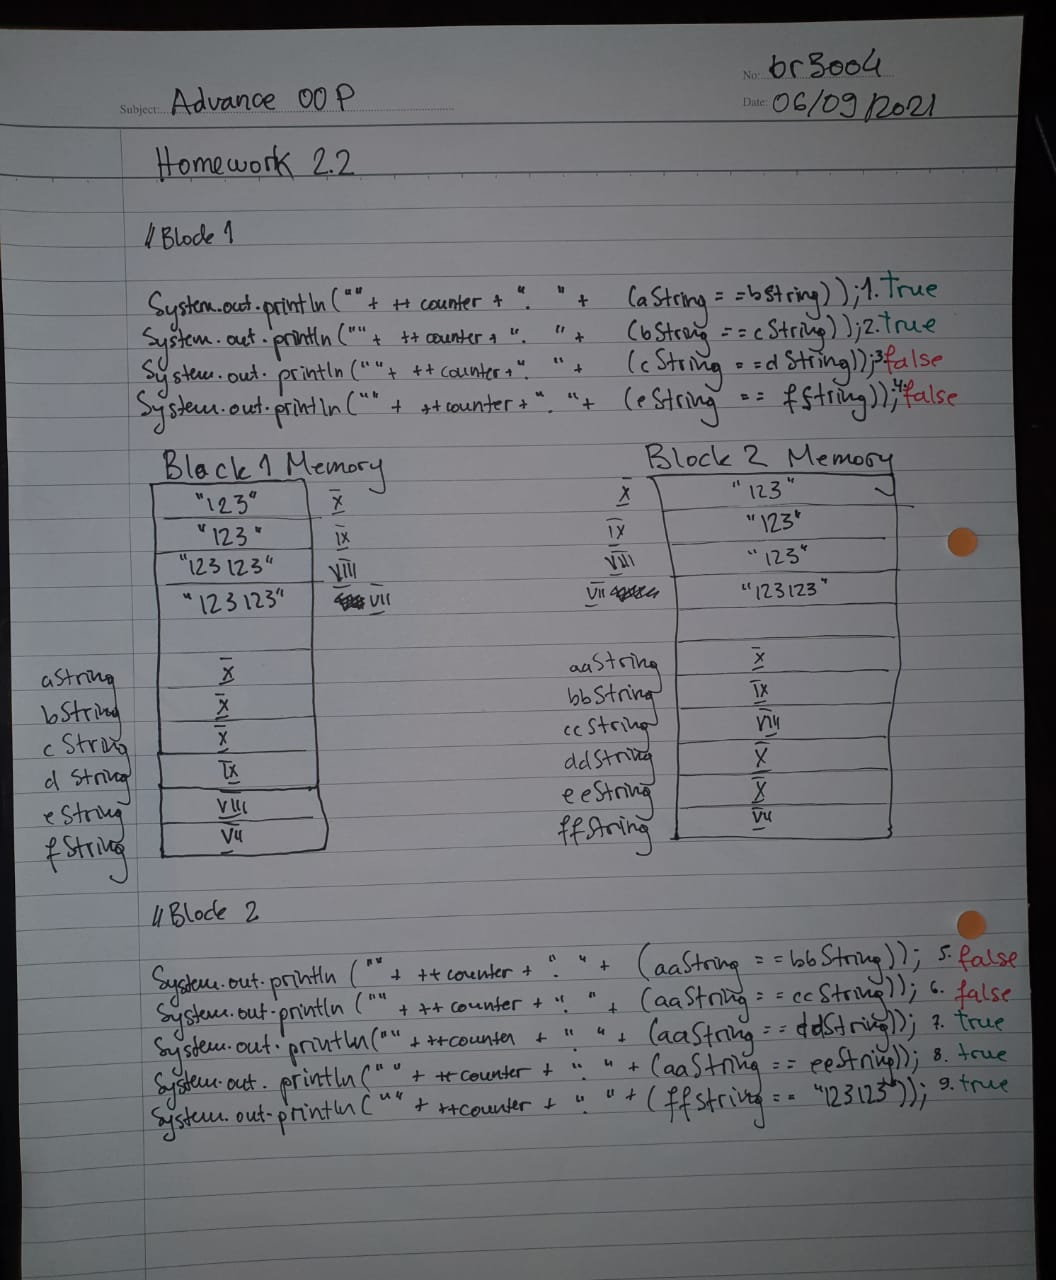 No: br3004
Subject: Advance OOP
Date: 06/09/2021
Homework 2.2
// Block 1
System.out.println(""+ ++ counter + ". " + (aString = =bString)); 1. True
System.out.println(""+ ++counter + ". " + (bString == cString)); 2. True
System.out.println(""+ ++counter +". " + (cString ==d String)); 3. false
System.out.println("" + ++counter +". "+ (eString == fString)); 4. false
Block 1 Memory
"123" X
"123" IX
"123123" VIII
"123123" VII
aString X
bString X
cString X
d String IX
eString VIII
fString VII
Block 2 Memory
X "123"
IX "123"
VIII "123"
VII "123123"
aaString X
bbString IX
ccString VIII
ddString X
eeString X
ffString VII
// Block 2
System.out.println (""+ ++counter + ". " + (aaString = =bbString)); 5. false
System.out.println ("" + ++ counter + ". " + (aaString = = ccString)); 6. false
System.out.println("" + ++counter + ". " + (aaString == ddString)); 7. true
System.out. println("" + ++counter + ". " + (aaString == eeString)); 8. true
System.out.println("" + ++counter + ". " + (ffString == "123123")); 9. true